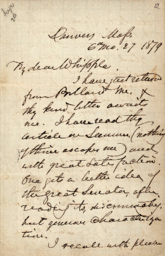 Danvers Mass
6 Mo. 27 1879
My dear Whipple
I have just returned
from Portland Me. &
thy kind letter awaits
me. I have read thy
article on Sumner (nothing
of thine escapes me) read
with great satisfaction.
One gets a better idea of
the great Senator after
reading thy discriminating
but generous characteriza
tion.
I recall with pleas